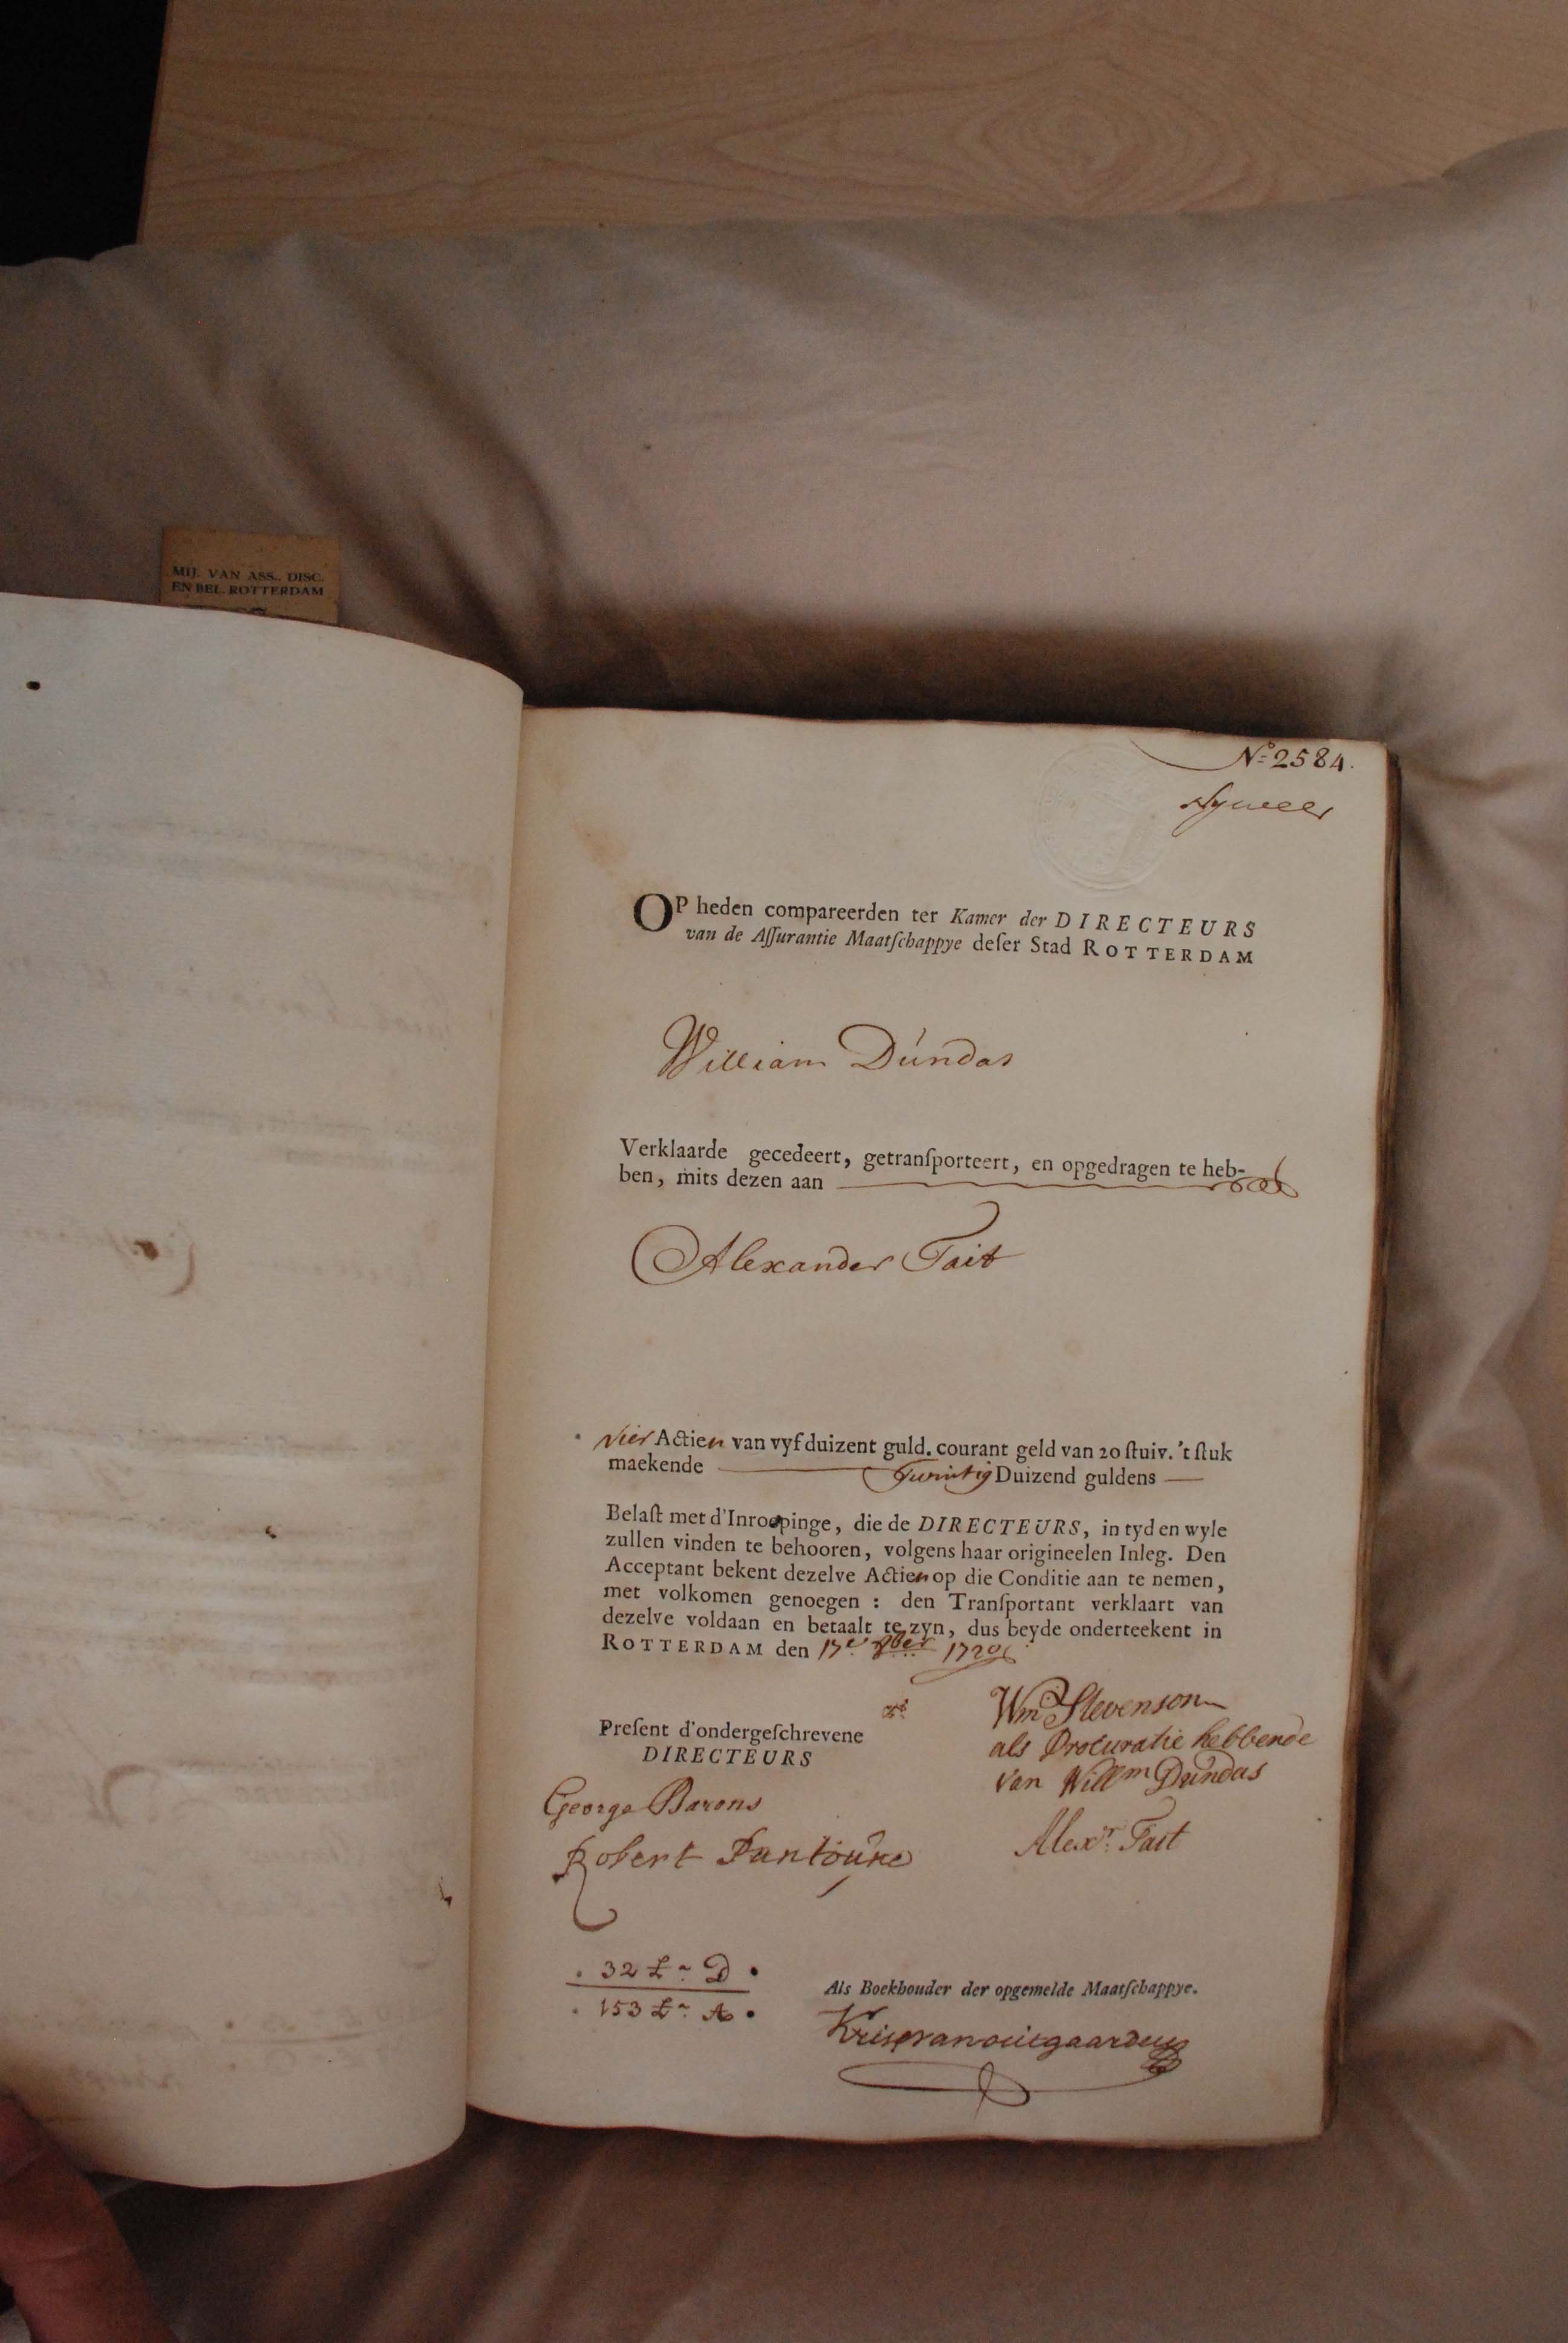 MIJ. VAN ASS., DISC.
EN BEL. ROTTERDAM
No. 2584.
OP heden compareerden ter Kamer der DIRECTEURS
van de Aſſurantie Maatſchappye deſer Stad ROTTERDAM
William Dúndas
Verklaarde gecedeert, getranſporteert, en opgedragen te heb-
ben, mits dezen aan
Alexander Tait
vier Actien van vyf duizent guld. courant geld van 20 ſtuiv. 't ſtuk
maekende Twintig Duizend guldens
Belaſt met d'Inroepinge, die de DIRECTEURS, in tyd en wyle
zullen vinden te behooren, volgens haar origineelen Inleg. Den
Acceptant bekent dezelve Actien op die Conditie aan te nemen,
met volkomen genoegen : den Tranſportant verklaart van
dezelve voldaan en betaalt te zyn, dus beyde onderteekent in
ROTTERDAM den 17e 1720
Preſent d'ondergeſchrevene
DIRECTEURS
Wm Stevenson
als Procuratie hebbende
van Willm Dúndas
George Barons
Alexr. Tait
Robert
32 £ D
153 £ A
Als Boekhouder der opgemelde Maatſchappye.